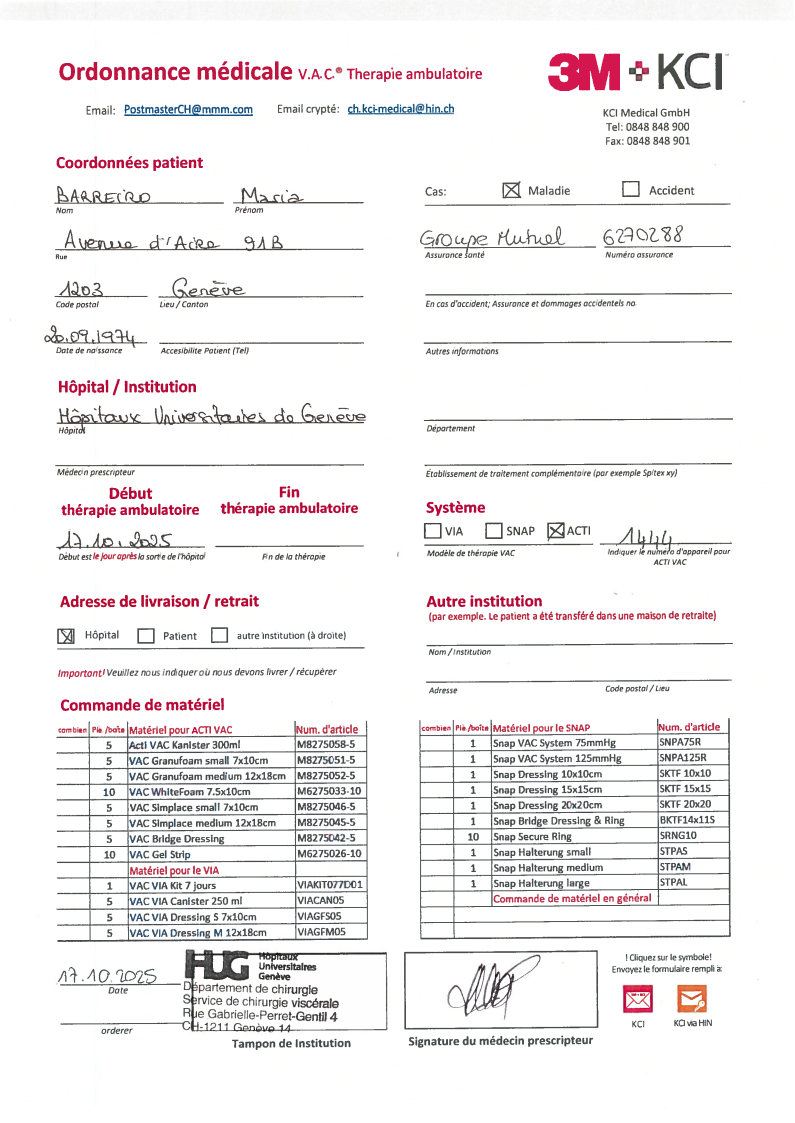 Ordonnance médicale V.A.C.® Therapie ambulatoire
3M + KCI
Email: PostmasterCH@mmm.com Email crypté: ch.kci-medical@hin.ch
KCI Medical GmbH
Tel: 0848 848 900
Fax: 0848 848 901
Coordonnées patient
BARREIRO Maria
Nom Prénom
Cas: ☒ Maladie ☐ Accident
Avenue d'Aire 91B
Rue
Groupe Mutuel 6270288
Assurance santé Numéro assurance
1203 Genève
Code postal Lieu / Canton
En cas d'accident; Assurance et dommages accidentels no
20.09.1974
Date de naissance Accesibilite Patient (Tel)
Autres informations
Hôpital / Institution
Hôpitaux Universitaires de Genève
Hôpital
Département
Médecin prescripteur
Établissement de traitement complémentaire (par exemple Spitex xy)
Début thérapie ambulatoire
Fin thérapie ambulatoire
17.10.2025
Début est le jour après la sortie de l'hôpital Fin de la thérapie
Système
☐ VIA ☐ SNAP ☒ ACTI 1444
Modèle de thérapie VAC Indiquer le numéro d'appareil pour ACTI VAC
Adresse de livraison / retrait
☒ Hôpital ☐ Patient ☐ autre institution (à droite)
Important! Veuillez nous indiquer où nous devons livrer / récupérer
Autre institution
(par exemple. Le patient a été transféré dans une maison de retraite)
Nom / Institution
Adresse Code postal / Lieu
Commande de matériel
combien Piè /boîte Matériel pour ACTI VAC Num. d'article
5 Acti VAC Kanister 300ml M8275058-5
5 VAC Granufoam small 7x10cm M8275051-5
5 VAC Granufoam medium 12x18cm M8275052-5
10 VAC WhiteFoam 7.5x10cm M6275033-10
5 VAC Simplace small 7x10cm M8275046-5
5 VAC Simplace medium 12x18cm M8275045-5
5 VAC Bridge Dressing M8275042-5
10 VAC Gel Strip M6275026-10
Matériel pour le VIA
1 VAC VIA Kit 7 jours VIAKIT077D01
5 VAC VIA Canister 250 ml VIACAN05
5 VAC VIA Dressing S 7x10cm VIAGFS05
5 VAC VIA Dressing M 12x18cm VIAGFM05
combien Piè /boîte Matériel pour le SNAP Num. d'article
1 Snap VAC System 75mmHg SNPA75R
1 Snap VAC System 125mmHg SNPA125R
1 Snap Dressing 10x10cm SKTF 10x10
1 Snap Dressing 15x15cm SKTF 15x15
1 Snap Dressing 20x20cm SKTF 20x20
1 Snap Bridge Dressing & Ring BKTF14x11S
10 Snap Secure Ring SRNG10
1 Snap Halterung small STPAS
1 Snap Halterung medium STPAM
1 Snap Halterung large STPAL
Commande de matériel en général
17.10.2025
Date
orderer
HUG Hôpitaux Universitaires Genève
Département de chirurgie
Service de chirurgie viscérale
Rue Gabrielle-Perret-Gentil 4
CH-1211 Genève 14
Tampon de Institution
Signature du médecin prescripteur
! Cliquez sur le symbole!
Envoyez le formulaire rempli à:
KCI KCI via HIN